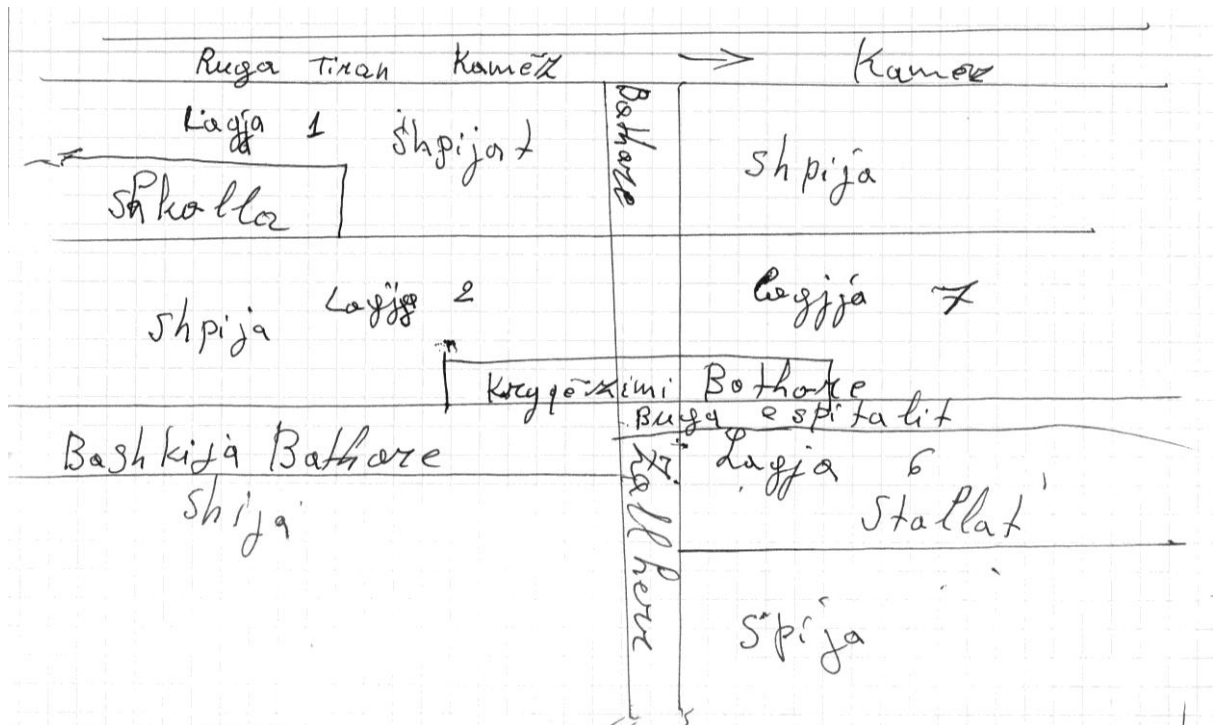 Ruga Tiran Kamëz → Kamëz
Lagja 1
Shpijat
Bathore
shpija
Shkolla
shpija
Lagjja 2
Lagjja 7
Kryqëzimi Bothore
Ruga e spitalit
Bashkija Bathore
Lagja 6
Stallat
Shija
Spija